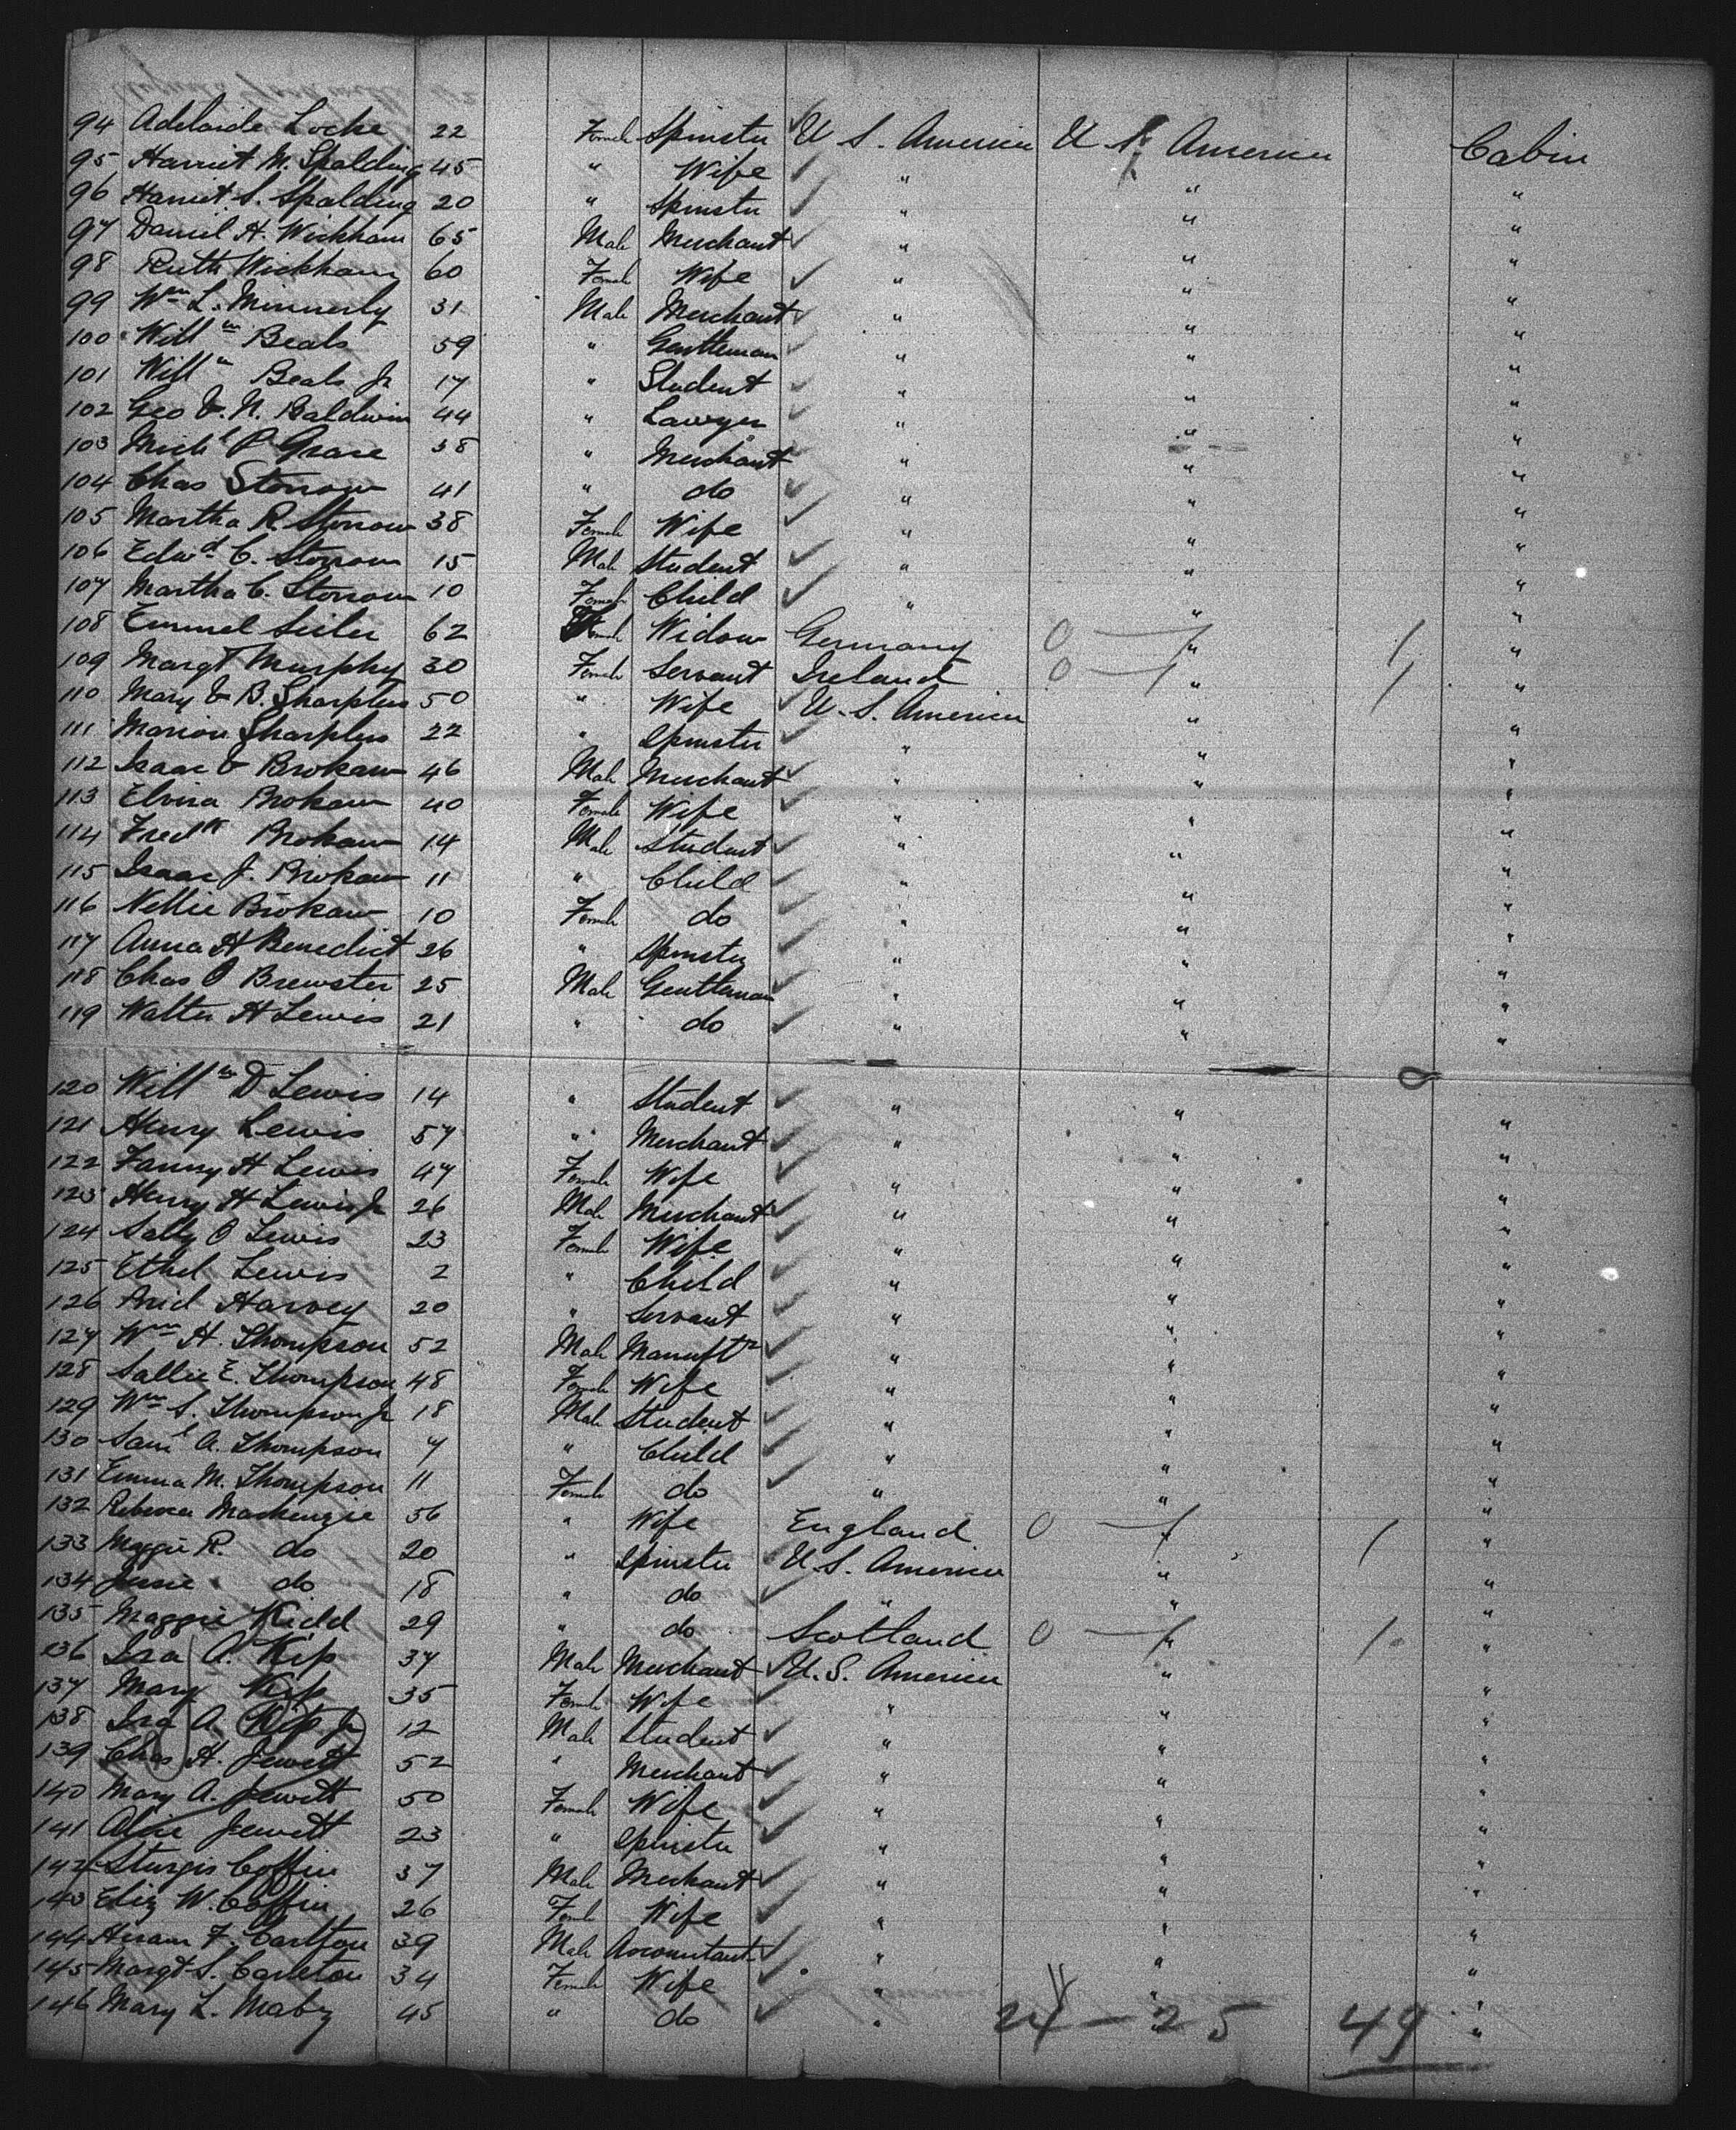 94 Adelaide Locke 22 Female Spinster U S. America U S. America Cabin
95 Harriet M. Spalding 45 " Wife " " "
96 Harriet S. Spalding 20 " Spinster " " "
97 Daniel H. Wickham 65 Male Merchant " " "
98 Ruth Wickham 60 Female Wife " " "
99 Wm L. Minnerly 31 Male Merchant " " "
100 Willm Beals 59 " Gentleman " " "
101 Willm Beals Jr 17 " Student " " "
102 Geo V. N. Baldwin 44 " Lawyer " " "
103 Michl P Grace 38 " Merchant " " "
104 Chas Storrow 41 " do " " "
105 Martha R. Storrow 38 Female Wife " " "
106 Edwd C. Storrow 15 Male Student " " "
107 Martha C. Storrow 10 Female Child " " "
108 Seiler 62 Female Widow Germany 0 — / " / "
109 Margt Murphy 30 Female Servant Ireland 0 — / " / "
110 Mary B. Sharpless 50 " Wife U. S. America " "
111 Marion Sharpless 22 " Spinster " " "
112 Isaac V Brokaw 46 Male Merchant " " "
113 Elvira Brokaw 40 Female Wife " " "
114 Fredk Brokaw 14 Male Student " " "
115 Isaac J. Brokaw 11 " Child " " "
116 Nellie Brokaw 10 Female do " " "
117 Anna H Benedict 26 " Spinster " " "
118 Chas O Brewster 25 Male Gentleman " " "
119 Walter H Lewis 21 " do " " "
120 Willm D Lewis 14 " Student " " "
121 Henry Lewis 57 " Merchant " " "
122 Fanny H Lewis 47 Female Wife " " "
123 Henry H Lewis Jr 26 Male Merchant " " "
124 Sally O Lewis 23 Female Wife " " "
125 Ethel Lewis 2 " Child " " "
126 Harvey 20 " Servant " " "
127 Wm H. Thompson 52 Male Manuftr " " "
128 Sallie E. Thompson 48 Female Wife " " "
129 Wm S. Thompson Jr 18 Male Student " " "
130 Saml A. Thompson 7 " Child " " "
131 Emma M. Thompson 11 Female do " " "
132 Rebecca Mackenzie 56 " Wife England 0 — / " / "
133 Maggie R. do 20 " Spinster U. S. America " "
134 Jessie do 18 " do " " "
135 Maggie Kidd 29 " do Scotland 0 — / " / "
136 Ira A. Kip 37 Male Merchant U. S. America " "
137 Mary Kip 35 Female Wife " " "
138 Ira A. Kip Jr 12 Male Student " " "
139 Chas H. Jewett 52 " Merchant " " "
140 Mary A. Jewett 50 Female Wife " " "
141 Alice Jewett 23 " Spinster " " "
142 Sturgis Coffin 37 Male Merchant " " "
143 Eliz W. Coffin 26 Feml Wife " " "
144 Hiram F. Carlton 39 Male Accountant " " "
145 Margt S. Carleton 34 Female Wife " " "
146 Mary L. Maby 45 " do " "
24 — 25 49